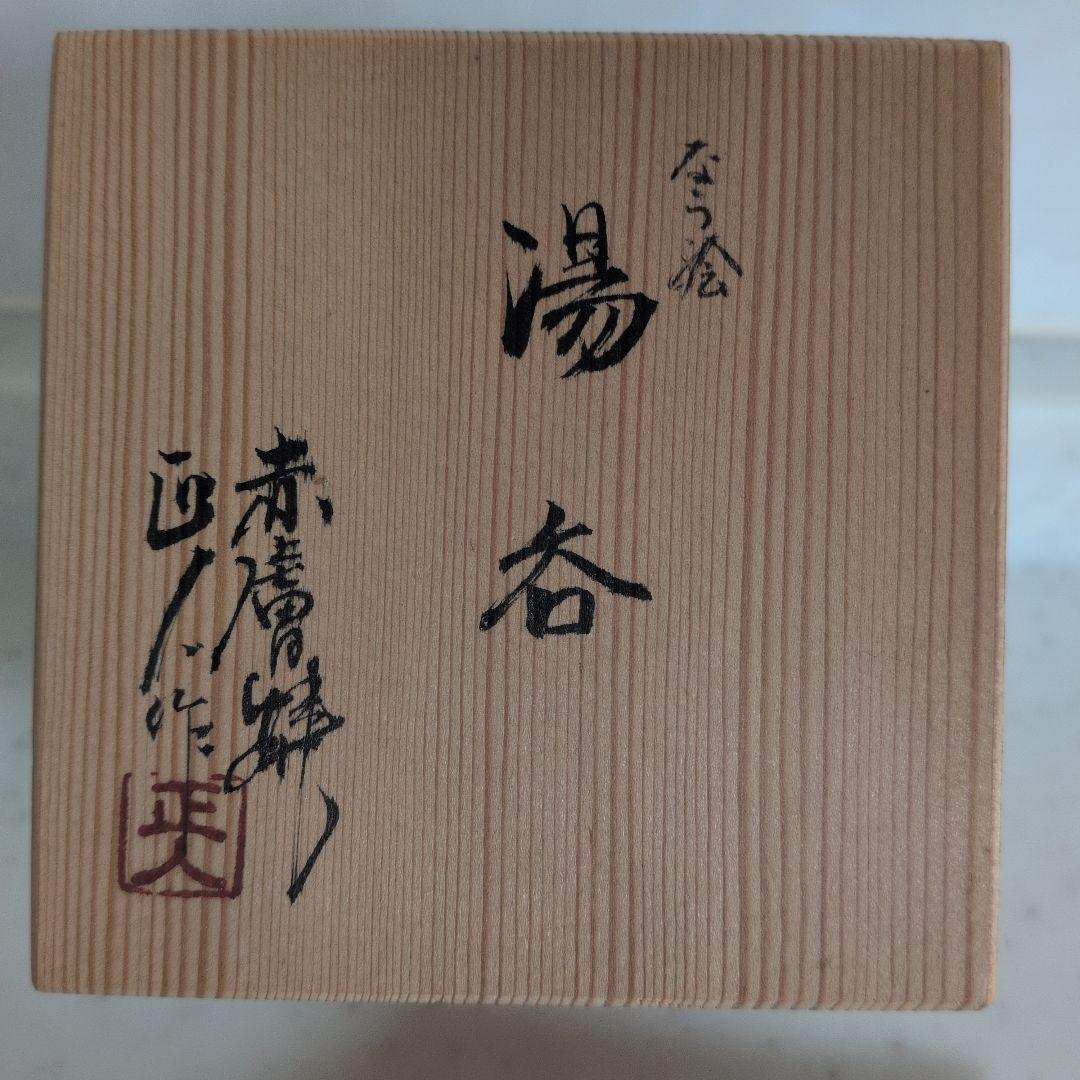 なら絵
湯呑
赤膚焼
正人作
正人